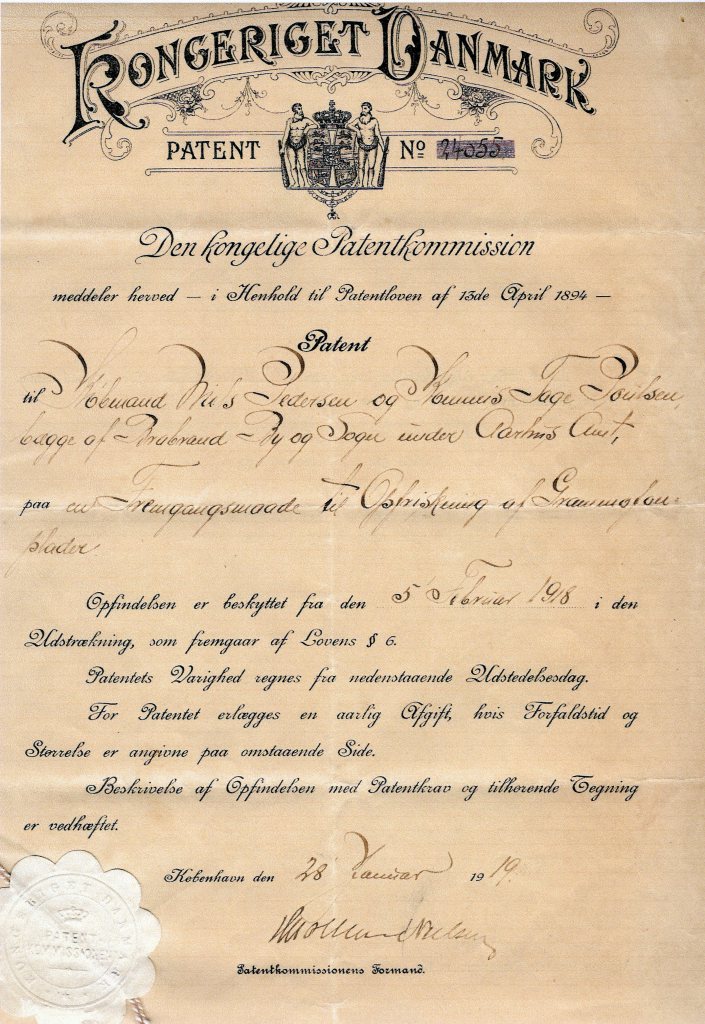 KONGERIGET DANMARK
PATENT No 24055
Den kongelige Patentkommission
meddeler herved — i Henhold til Patentloven af 13de April 1894 —
Patent
til Købmand Niels Pedersen og Kommis Tage Poulsen,
begge af Brabrand By og Sogn under Aarhus Amt,
paa en Fremgangsmaade til Opfriskning af Grammofon=
plader.
Opfindelsen er beskyttet fra den 5' Februar 1918 i den
Udstrækning, som fremgaar af Lovens § 6.
Patentets Varighed regnes fra nedenstaaende Udstedelsesdag.
For Patentet erlægges en aarlig Afgift, hvis Forfaldstid og
Størrelse er angivne paa omstaaende Side.
Beskrivelse af Opfindelsen med Patentkrav og tilhørende Tegning
er vedhæftet.
København den 28' Januar 1919.
Patentkommissionens Formand.
PATENT
KOMMISSIONEN